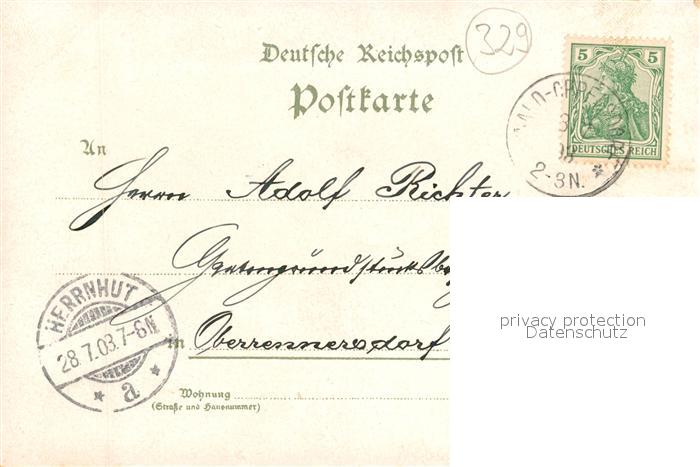 329
Deutsche Reichspost
Postkarte
5 5
DEUTSCHES REICH
2-3N.
An
Herrn Adolf Richter
HERRNHUT
28.7.03.7-8N.
a
in Oberrennersdorf
privacy protection
Datenschutz
Wohnung
(Straße und Hausnummer)